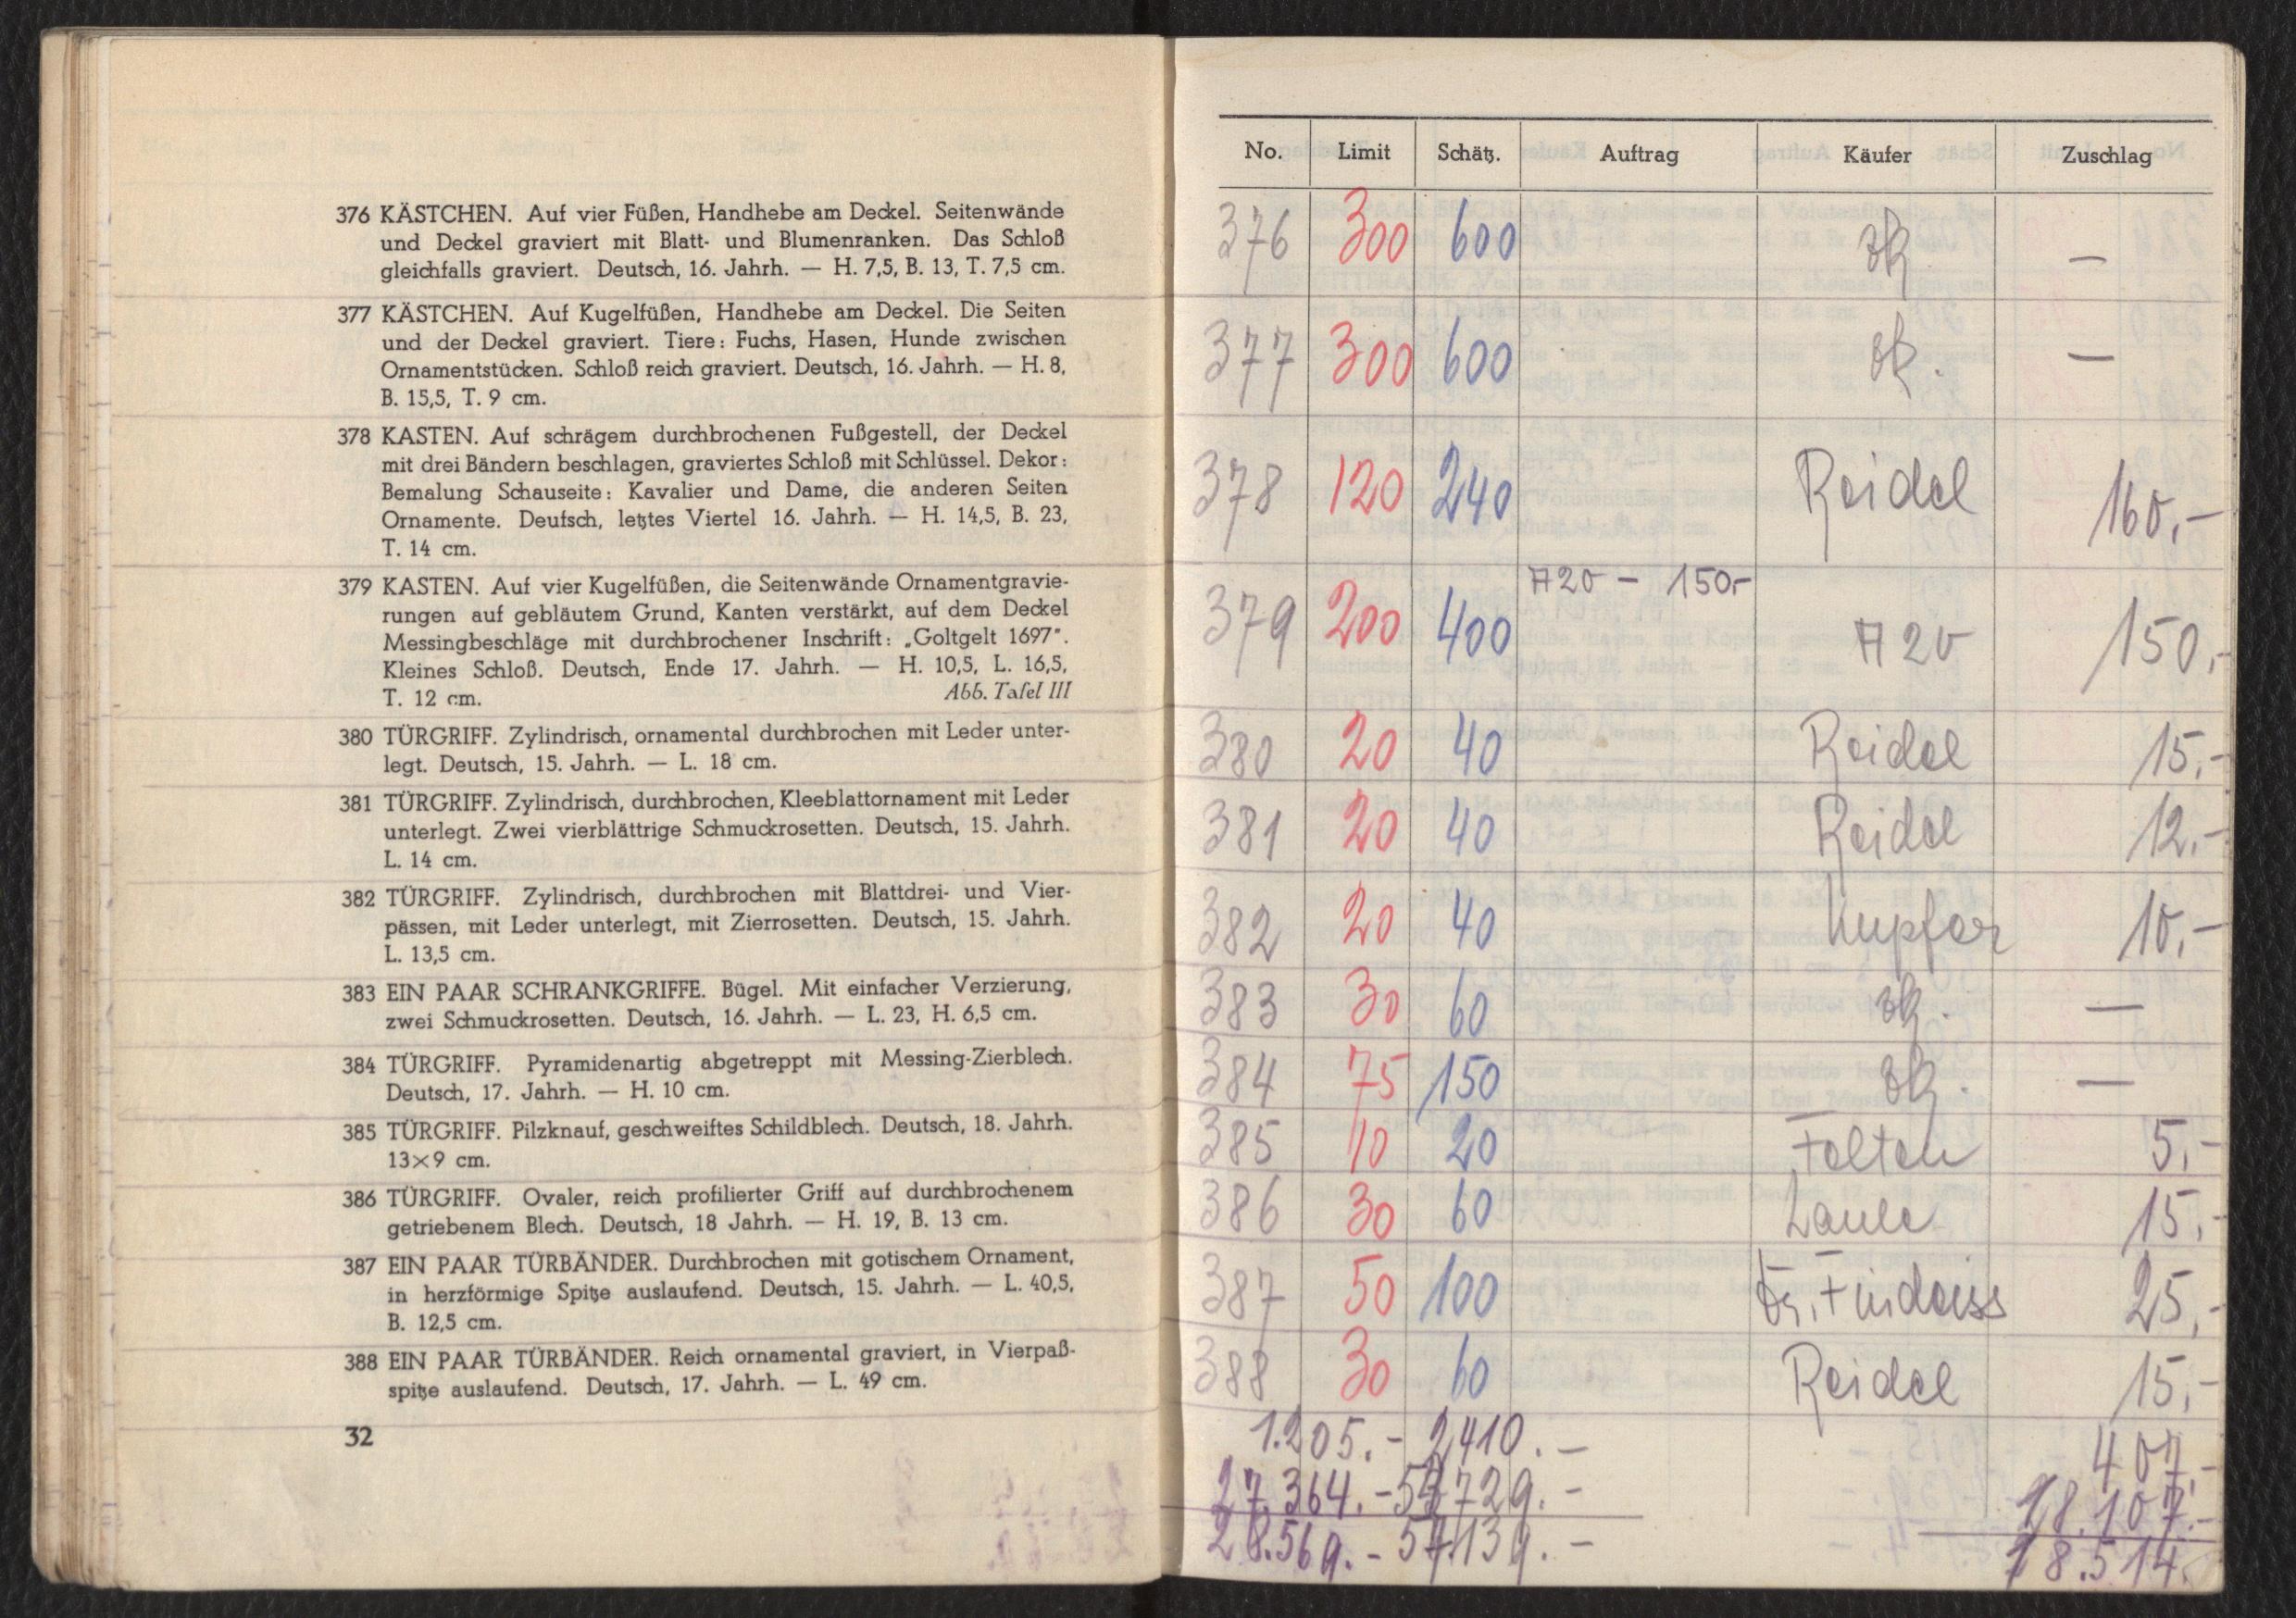 376 KÄSTCHEN. Auf vier Füßen, Handhebe am Deckel. Seitenwände
und Deckel graviert mit Blatt- und Blumenranken. Das Schloß
gleichfalls graviert. Deutsch, 16. Jahrh. — H. 7,5, B. 13, T. 7,5 cm.
377 KÄSTCHEN. Auf Kugelfüßen, Handhebe am Deckel. Die Seiten
und der Deckel graviert. Tiere: Fuchs, Hasen, Hunde zwischen
Ornamentstücken. Schloß reich graviert. Deutsch, 16. Jahrh. — H. 8,
B. 15,5, T. 9 cm.
378 KASTEN. Auf schrägem durchbrochenen Fußgestell, der Deckel
mit drei Bändern beschlagen, graviertes Schloß mit Schlüssel. Dekor:
Bemalung Schauseite: Kavalier und Dame, die anderen Seiten
Ornamente. Deutsch, letztes Viertel 16. Jahrh. — H. 14,5, B. 23,
T. 14 cm.
379 KASTEN. Auf vier Kugelfüßen, die Seitenwände Ornamentgravie-
rungen auf gebläutem Grund, Kanten verstärkt, auf dem Deckel
Messingbeschläge mit durchbrochener Inschrift: „Goltgelt 1697".
Kleines Schloß. Deutsch, Ende 17. Jahrh. — H. 10,5, L. 16,5,
T. 12 cm. Abb. Tafel III
380 TÜRGRIFF. Zylindrisch, ornamental durchbrochen mit Leder unter-
legt. Deutsch, 15. Jahrh. — L. 18 cm.
381 TÜRGRIFF. Zylindrisch, durchbrochen, Kleeblattornament mit Leder
unterlegt. Zwei vierblättrige Schmuckrosetten. Deutsch, 15. Jahrh.
L. 14 cm.
382 TÜRGRIFF. Zylindrisch, durchbrochen mit Blattdrei- und Vier-
pässen, mit Leder unterlegt, mit Zierrosetten. Deutsch, 15. Jahrh.
L. 13,5 cm.
383 EIN PAAR SCHRANKGRIFFE. Bügel. Mit einfacher Verzierung,
zwei Schmuckrosetten. Deutsch, 16. Jahrh. — L. 23, H. 6,5 cm.
384 TÜRGRIFF. Pyramidenartig abgetreppt mit Messing-Zierblech.
Deutsch, 17. Jahrh. — H. 10 cm.
385 TÜRGRIFF. Pilzknauf, geschweiftes Schildblech. Deutsch, 18. Jahrh.
13×9 cm.
386 TÜRGRIFF. Ovaler, reich profilierter Griff auf durchbrochenem
getriebenem Blech. Deutsch, 18 Jahrh. — H. 19, B. 13 cm.
387 EIN PAAR TÜRBÄNDER. Durchbrochen mit gotischem Ornament,
in herzförmige Spitze auslaufend. Deutsch, 15. Jahrh. — L. 40,5,
B. 12,5 cm.
388 EIN PAAR TÜRBÄNDER. Reich ornamental graviert, in Vierpaß-
spitze auslaufend. Deutsch, 17. Jahrh. — L. 49 cm.
32
No. Limit Schätz. Auftrag Käufer Zuschlag
376 300 600 —
377 300 600 —
378 120 240 Reidel 160,-
A20 - 150,-
379 200 400 A 20 150,-
380 20 40 Reidel 15,-
381 20 40 Reidel 12,-
382 20 40 Kupfer 10,-
383 30 60 —
384 75 150 —
385 10 20 Felten 5,-
386 30 60 Laule 15,-
387 50 100 Dr. Findeiss 25,-
388 30 60 Reidel 15,-
1.205.- 2410.- 407,-
27.364.- 54729.- 18.107.-
28.569.- 57.139.- 18.514.